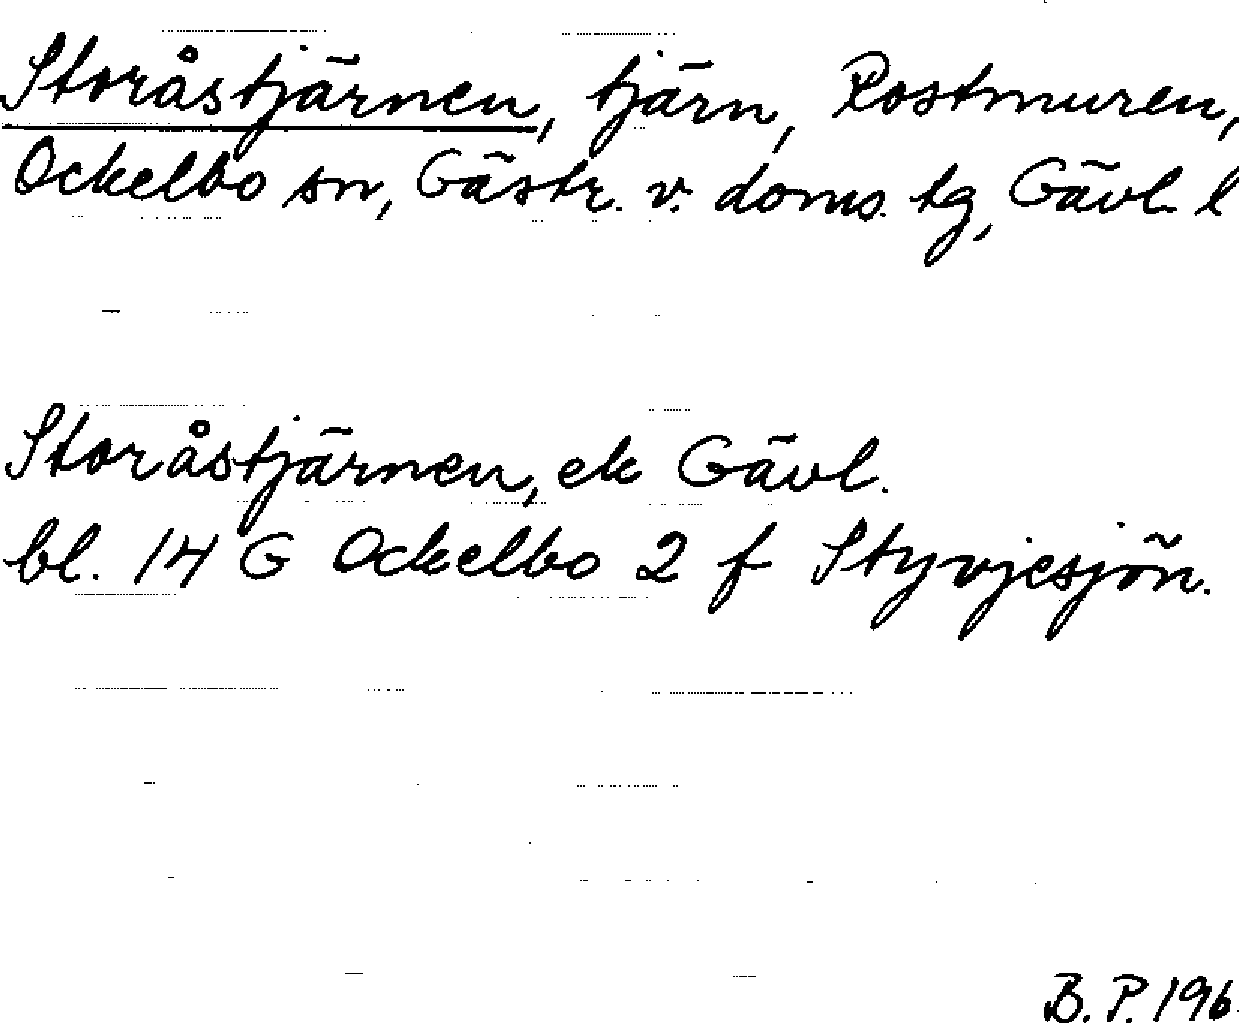 Storåstjärnen, tjärn, Rostmuren,
Ockelbo sn, Gästr. v. doms. tg, Gävl. l
Storåstjärnen, ek Gävl.
bl. 14 G Ockelbo 2 f Styvjesjön.
B. P. 196